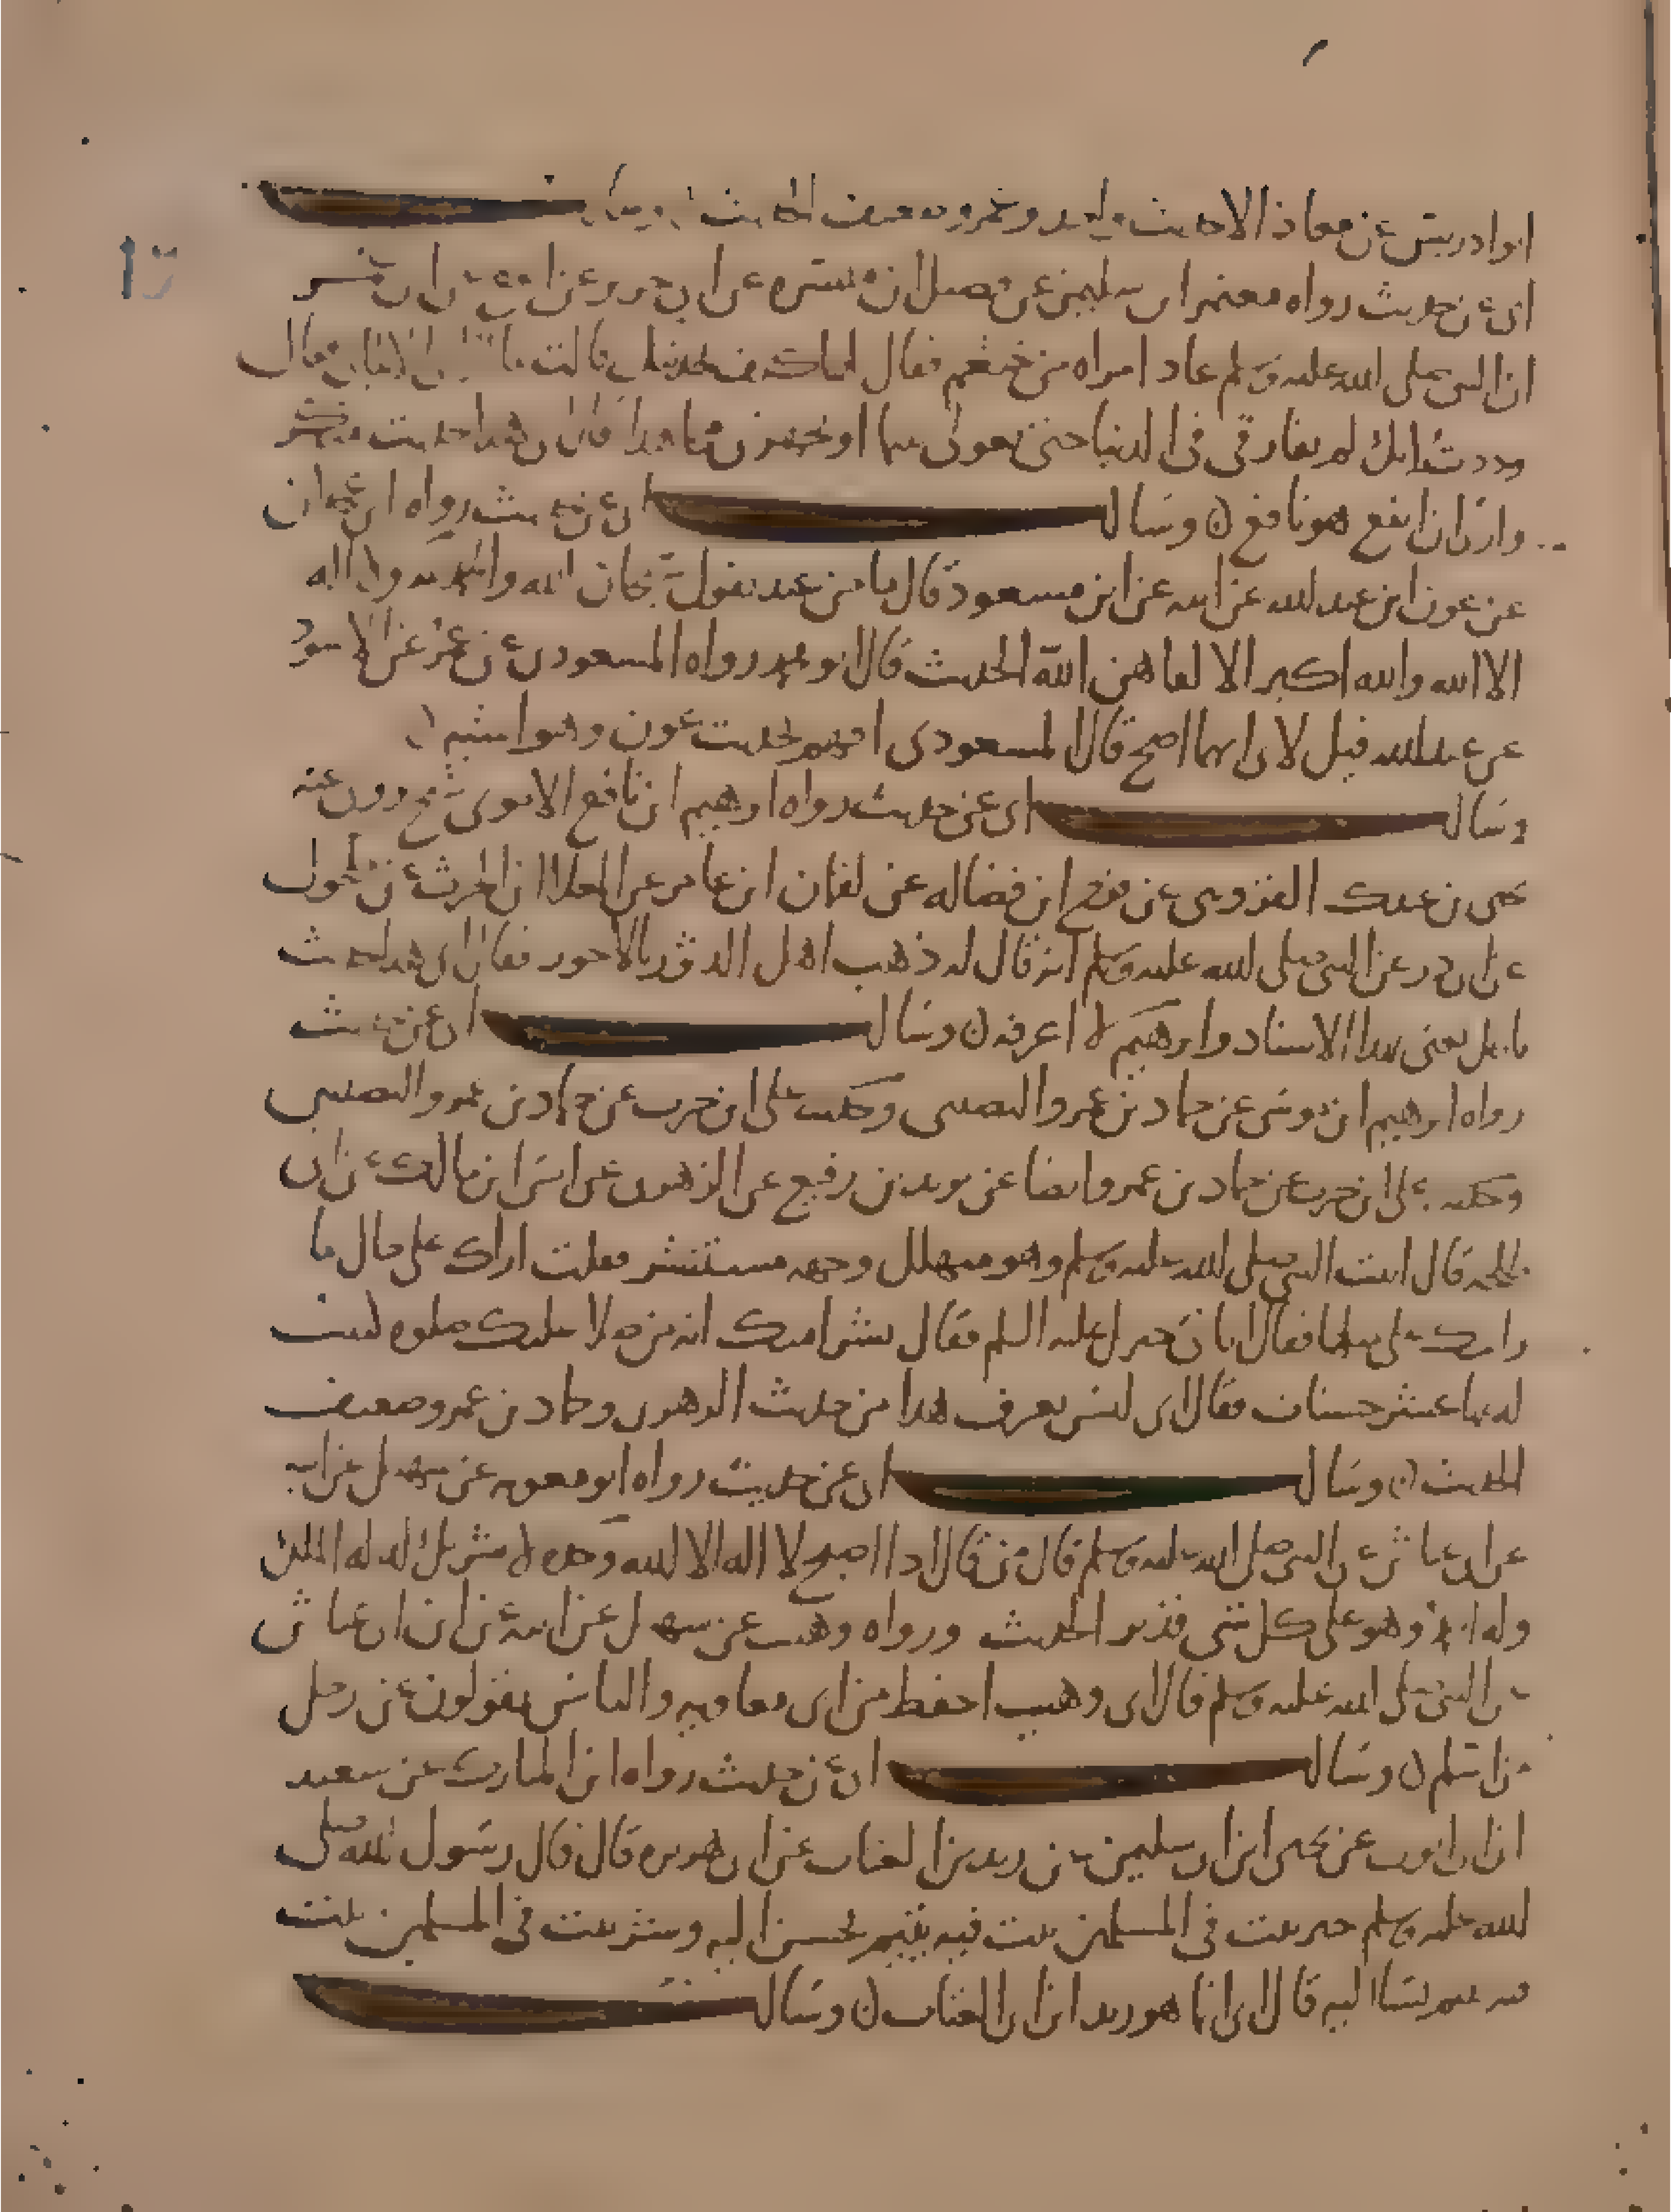 ابو ادريس عن معاذ الا حديث واحد وعمرو ضعيف الحديث
ابي عن حديث رواه معتمر ابن سليمن عن فضيل ابن ميسره عن ابي حرير عن
ان النبي صلى الله عليه وسلم عاد امراه من خثعم فقال لها كيف تجدينك قالت قال
وددت انك لم تفارقي في الدنيا حتى تعولي يتيما او تجهزي غازيا قال ابي هذا حديث منكر
وارى ان انفع هو نافع ن وسالـ ابي عن حديث رواه ابن عجلان
عن عون ابن عبد الله عن ابيه عن ابن مسعود قال ما من عبد يقول سبحان الله والحمد لله ولا اله
الا الله والله اكبر الا لقاهن الله الحديث قال ابو محمد رواه المسعودي عن عون عن الاسود
عن عبد الله قيل لابي ايهما اصح قال المسعودي افهم بحديث عون وهو اشبه ن
وسالـ ابي عن حديث رواه ابرهيم ابن نافع الاموي شيخ روى عنه
يحيى بن عبدك القزويني عن فرج ابن فضاله عن لقمان ابن عامر عن العلا ابن الحرث عن مكحول
عن ابي ذر عن النبي صلى الله عليه وسلم انه قال له ذهب اهل الدثور بالاجور فقال ابي هذا حديث
باطل يعني بهذا الاسناد وابرهيم لا اعرفه ن وسالـ ابي عن حديث
رواه ابرهيم ابن موسى عن حماد بن عمرو النصيبي وكتب علي ابن حرب عن حماد بن عمرو النصيبي
وكتب علي ابن حرب عن حماد بن عمرو ايضا عن يزيد بن رفيع عن الزهري عن انس ابن مالك عن ابي
طلحه قال اتيت النبي صلى الله عليه وسلم وهو متهلل وجهه مستبشر فقلت اراك على حال ما
رايتك على مثلها فقال اتاني جبريل عليه السلم فقال بشر امتك انه من صلا عليك صلوه كتبت
له بها عشر حسنات فقال ابي ليس يعرف هذا من حديث الزهري وحماد بن عمرو ضعيف
الحديث ن وسالـ ابي عن حديث رواه ابو معويه عن سهيل عن ابيه
عن ابن عياش عن النبي صلى الله عليه وسلم قال من قال اذا اصبح لا اله الا الله وحده لا شريك له له الملك
وله الحمد وهو على كل شي قدير الحديث ورواه وهيب عن سهيل عن ابيه عن ابن ابي عياش
عن النبي صلى الله عليه وسلم قال ابي وهيب احفظ من ابي معاويه والناس يقولون عن رجل
من اسلم ن وسالـ ابي عن حديث رواه ابن المبارك عن سعيد
ابن ابي ايوب عن يحيى ابن ابي سليمن عن زيد بن العتاب عن ابي هريره قال قال رسول الله صلى
الله عليه وسلم خير بيت في المسلمين بيت فيه يتيم يحسن اليه وشر بيت في المسلمين بيت
فيه يتيم يسا اليه قال ابي انما هو زيد ابن ابي العتاب ن وسالـ